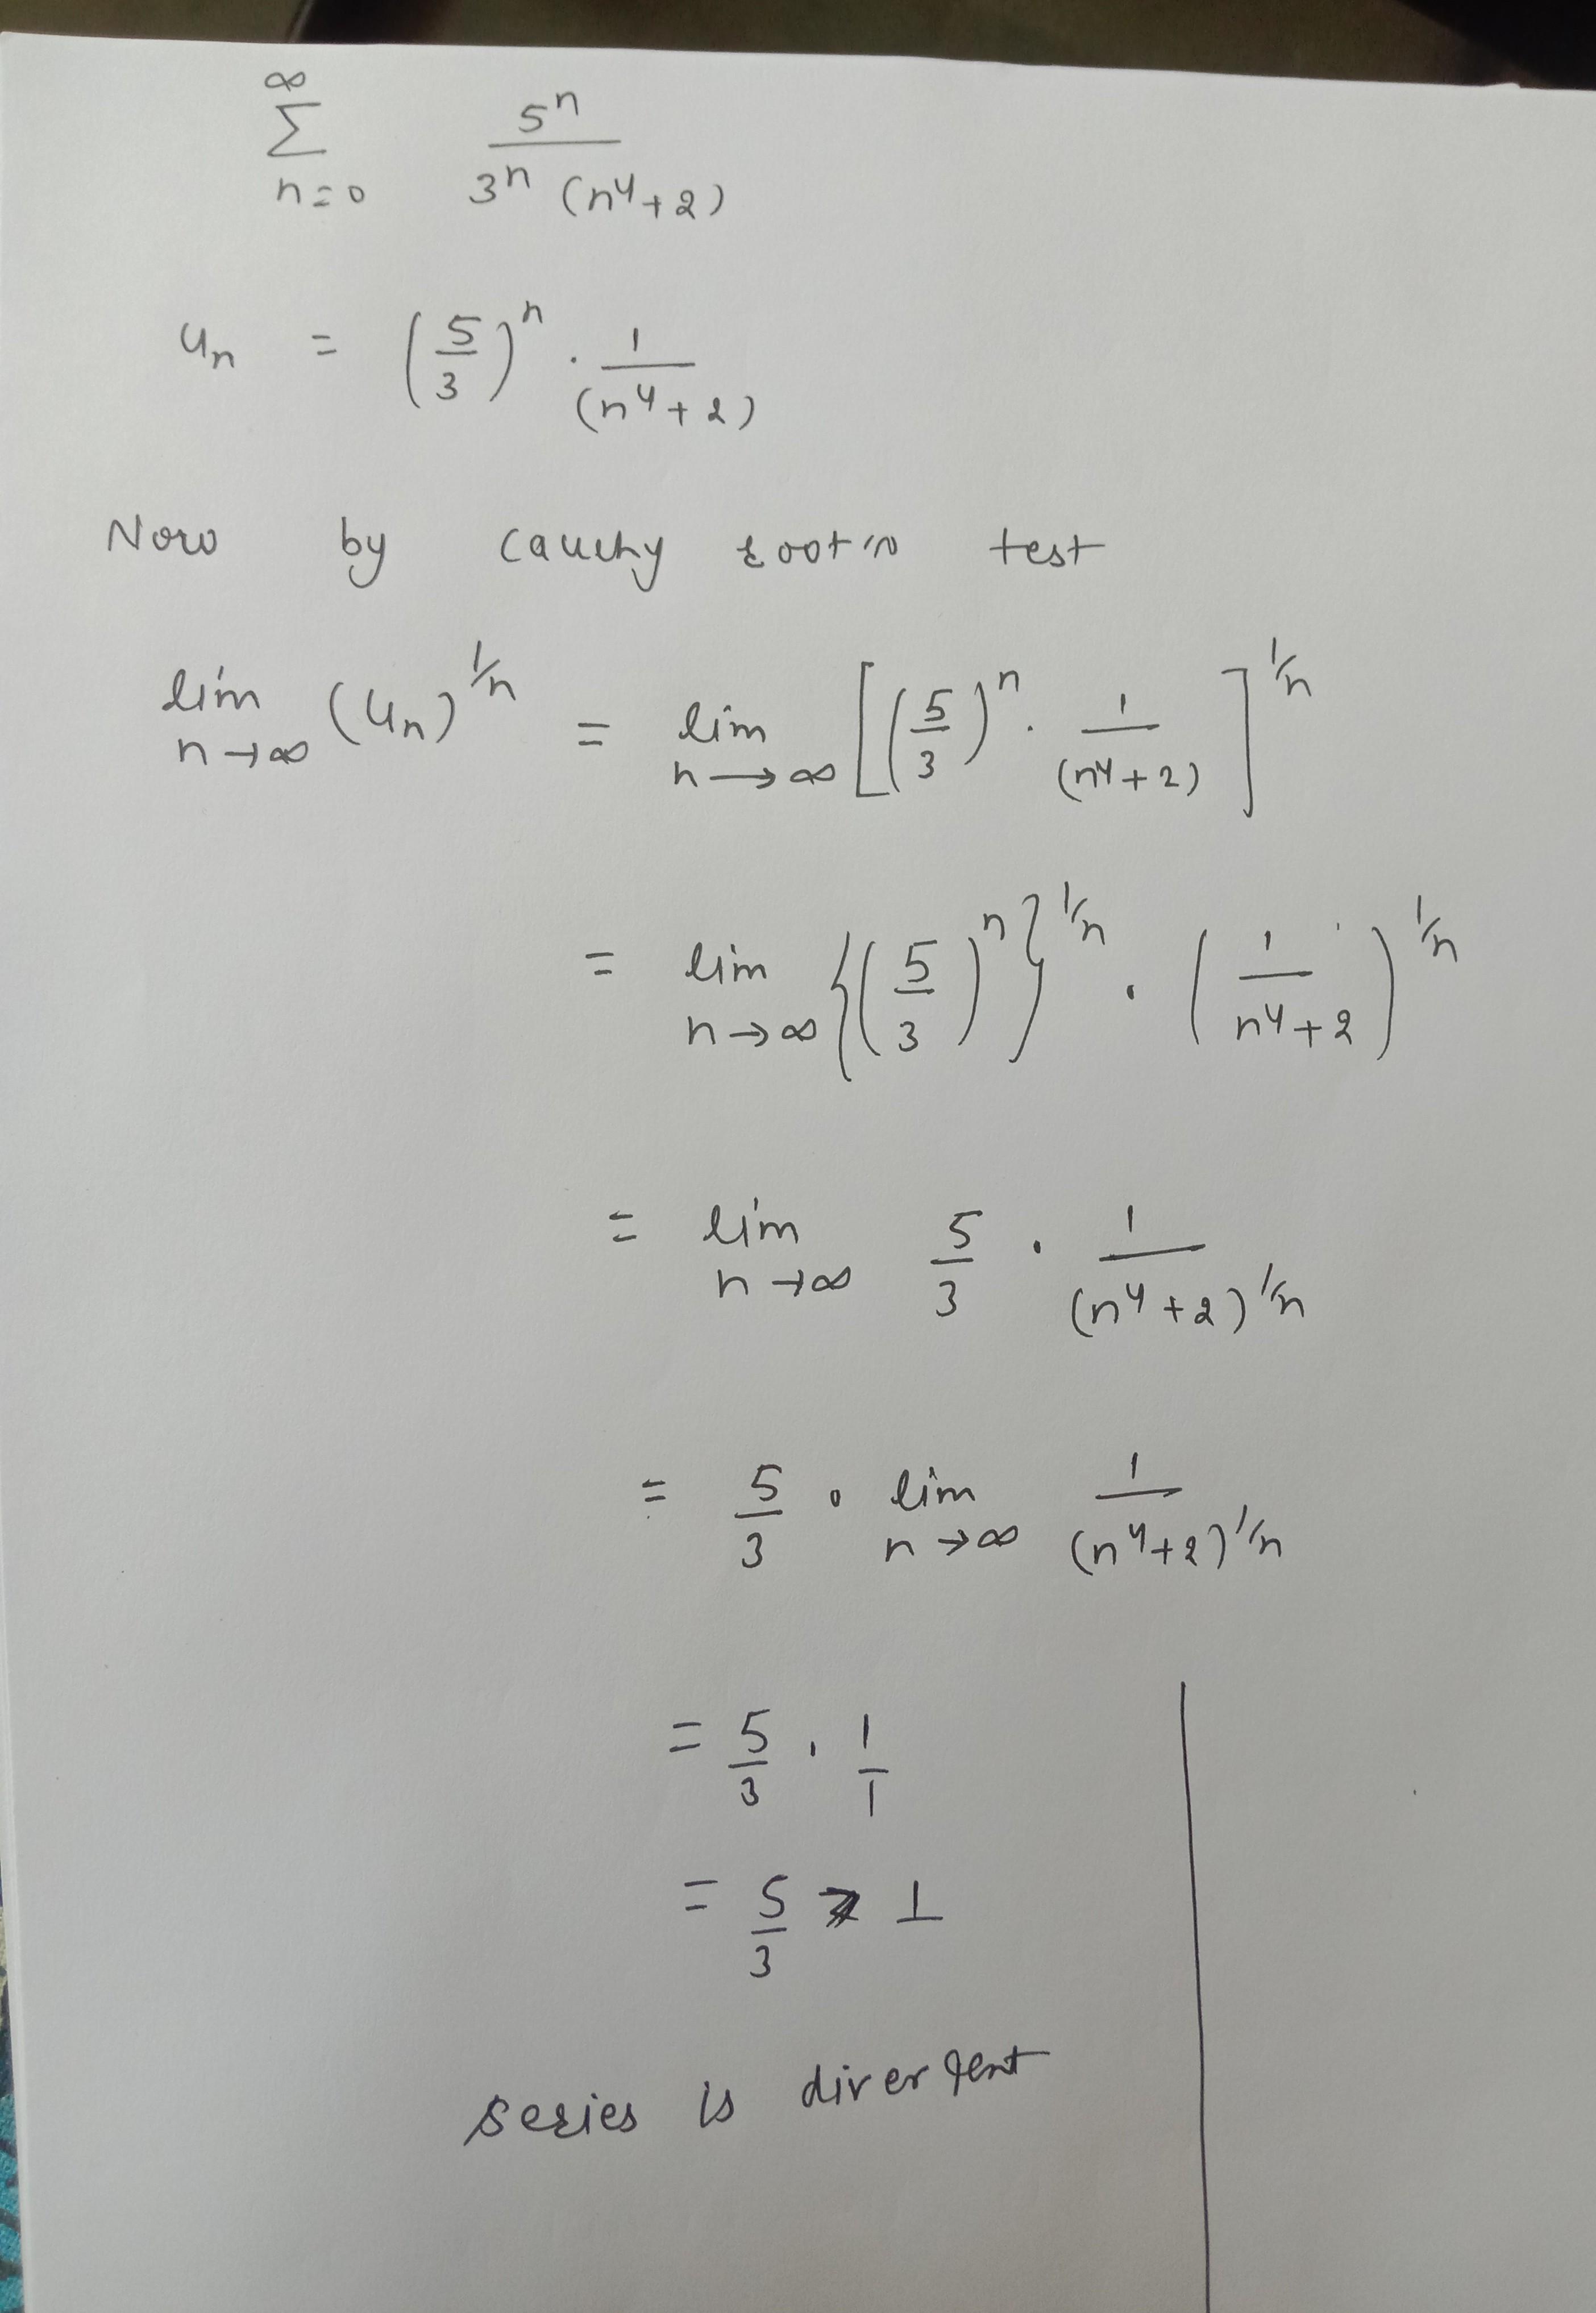 ∞
Σ 5ⁿ / 3ⁿ (n⁴+2)
n=0
uₙ = (5/3)ⁿ · 1/(n⁴+2)
Now by cauchy test
lim n→∞ (uₙ)^1/n = lim n→∞ [(5/3)ⁿ · 1/(n⁴+2)]^1/n
= lim n→∞ {(5/3)ⁿ}^1/n · (1/n⁴+2)^1/n
= lim n→∞ 5/3 · 1/(n⁴+2)^1/n
= 5/3 · lim n→∞ 1/(n⁴+2)^1/n
= 5/3 · 1/1
= 5/3 > 1
series is divergent